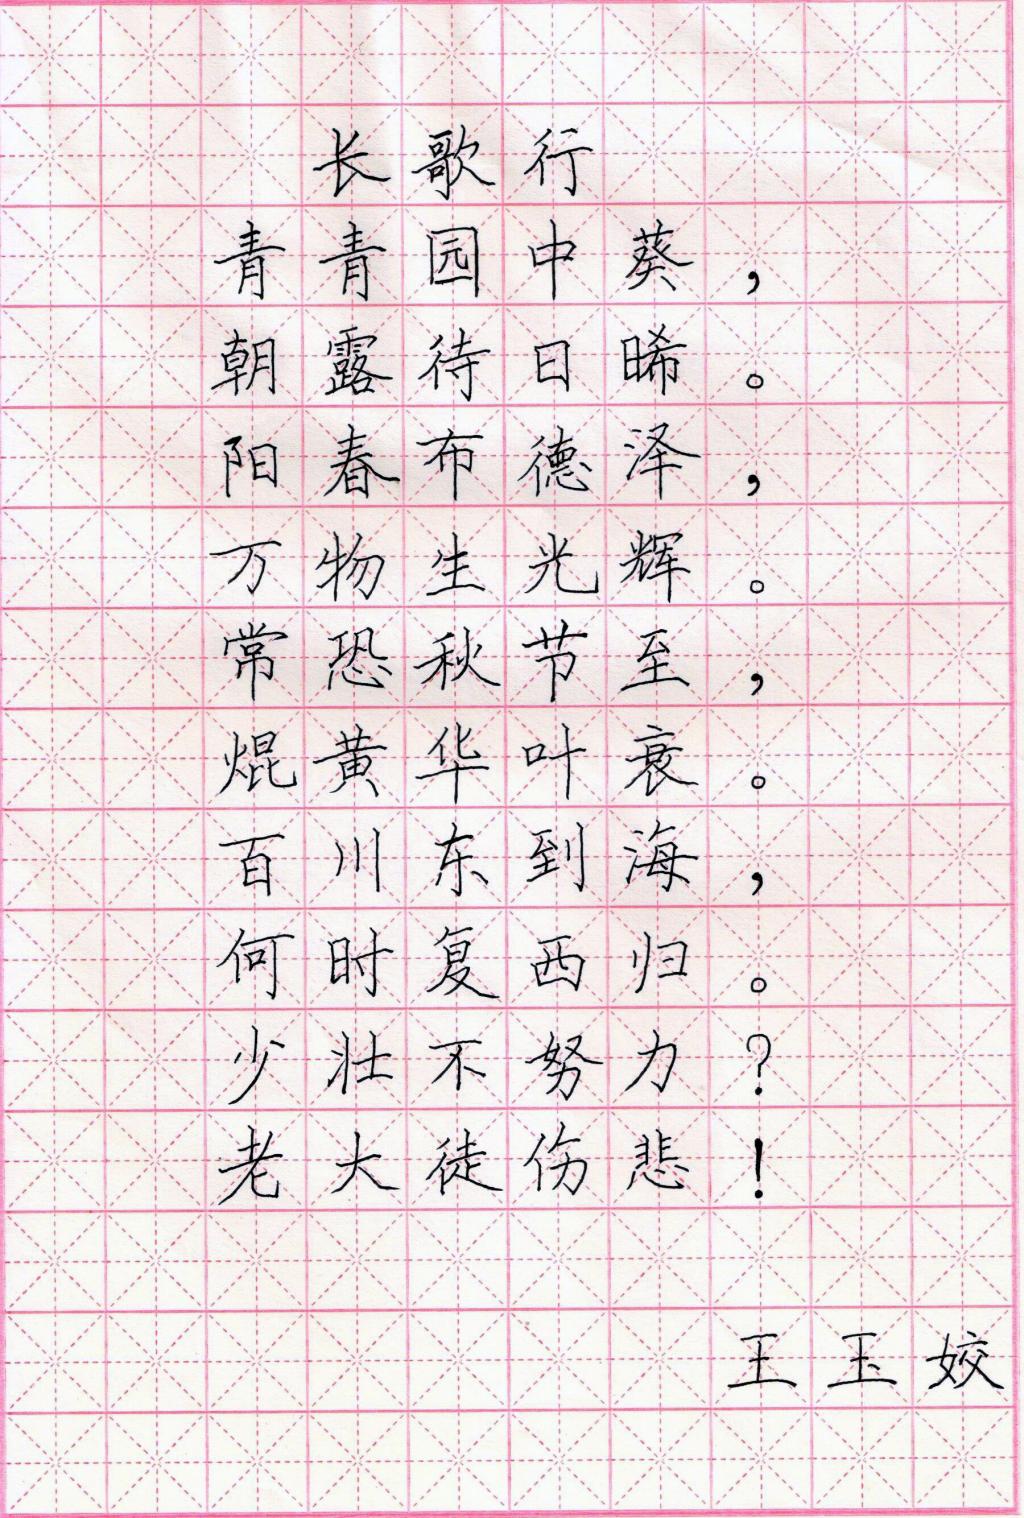 长歌行
青青园中葵，
朝露待日晞。
阳春布德泽，
万物生光辉。
常恐秋节至，
焜黄华叶衰。
百川东到海，
何时复西归。
少壮不努力？
老大徒伤悲！
王玉姣